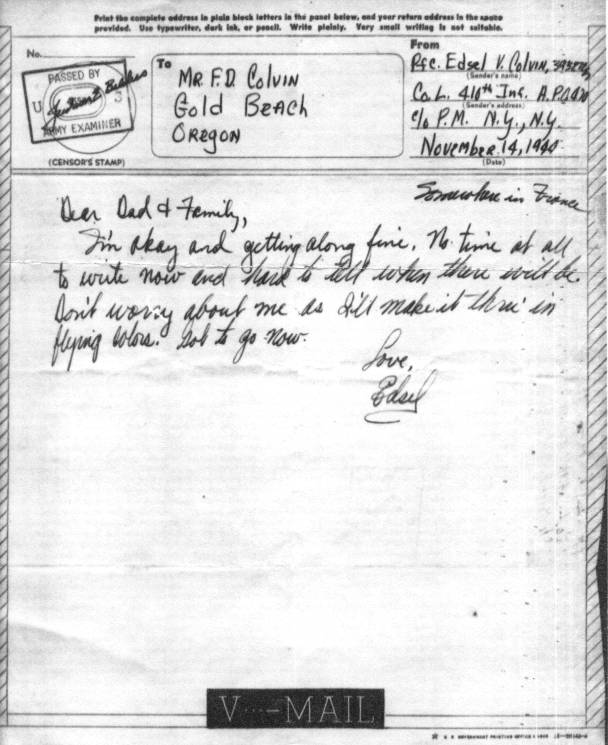 Print the complete address in plain block letters in the panel below, and your return address in the space
provided. Use typewriter, dark ink, or pencil. Write plainly. Very small writing is not suitable.
No.
PASSED BY
U S
ARMY EXAMINER
(CENSOR'S STAMP)
To
MR. F.D. COLVIN
GOLD BEACH
OREGON
From
Pfc. Edsel V. Colvin,
(Sender's name)
Co. L. 410th Inf. A.P.O.
(Sender's address)
c/o P.M. N.Y., N.Y.
November 14, 1944
(Date)
Somewhere in France
Dear Dad & Family,
I'm okay and getting along fine. No time at all
to write now and hard to tell when there will be.
Don't worry about me as I'll make it thru' in
flying colors. Got to go now.
Love,
Edsel
V···—MAIL
U. S. GOVERNMENT PRINTING OFFICE